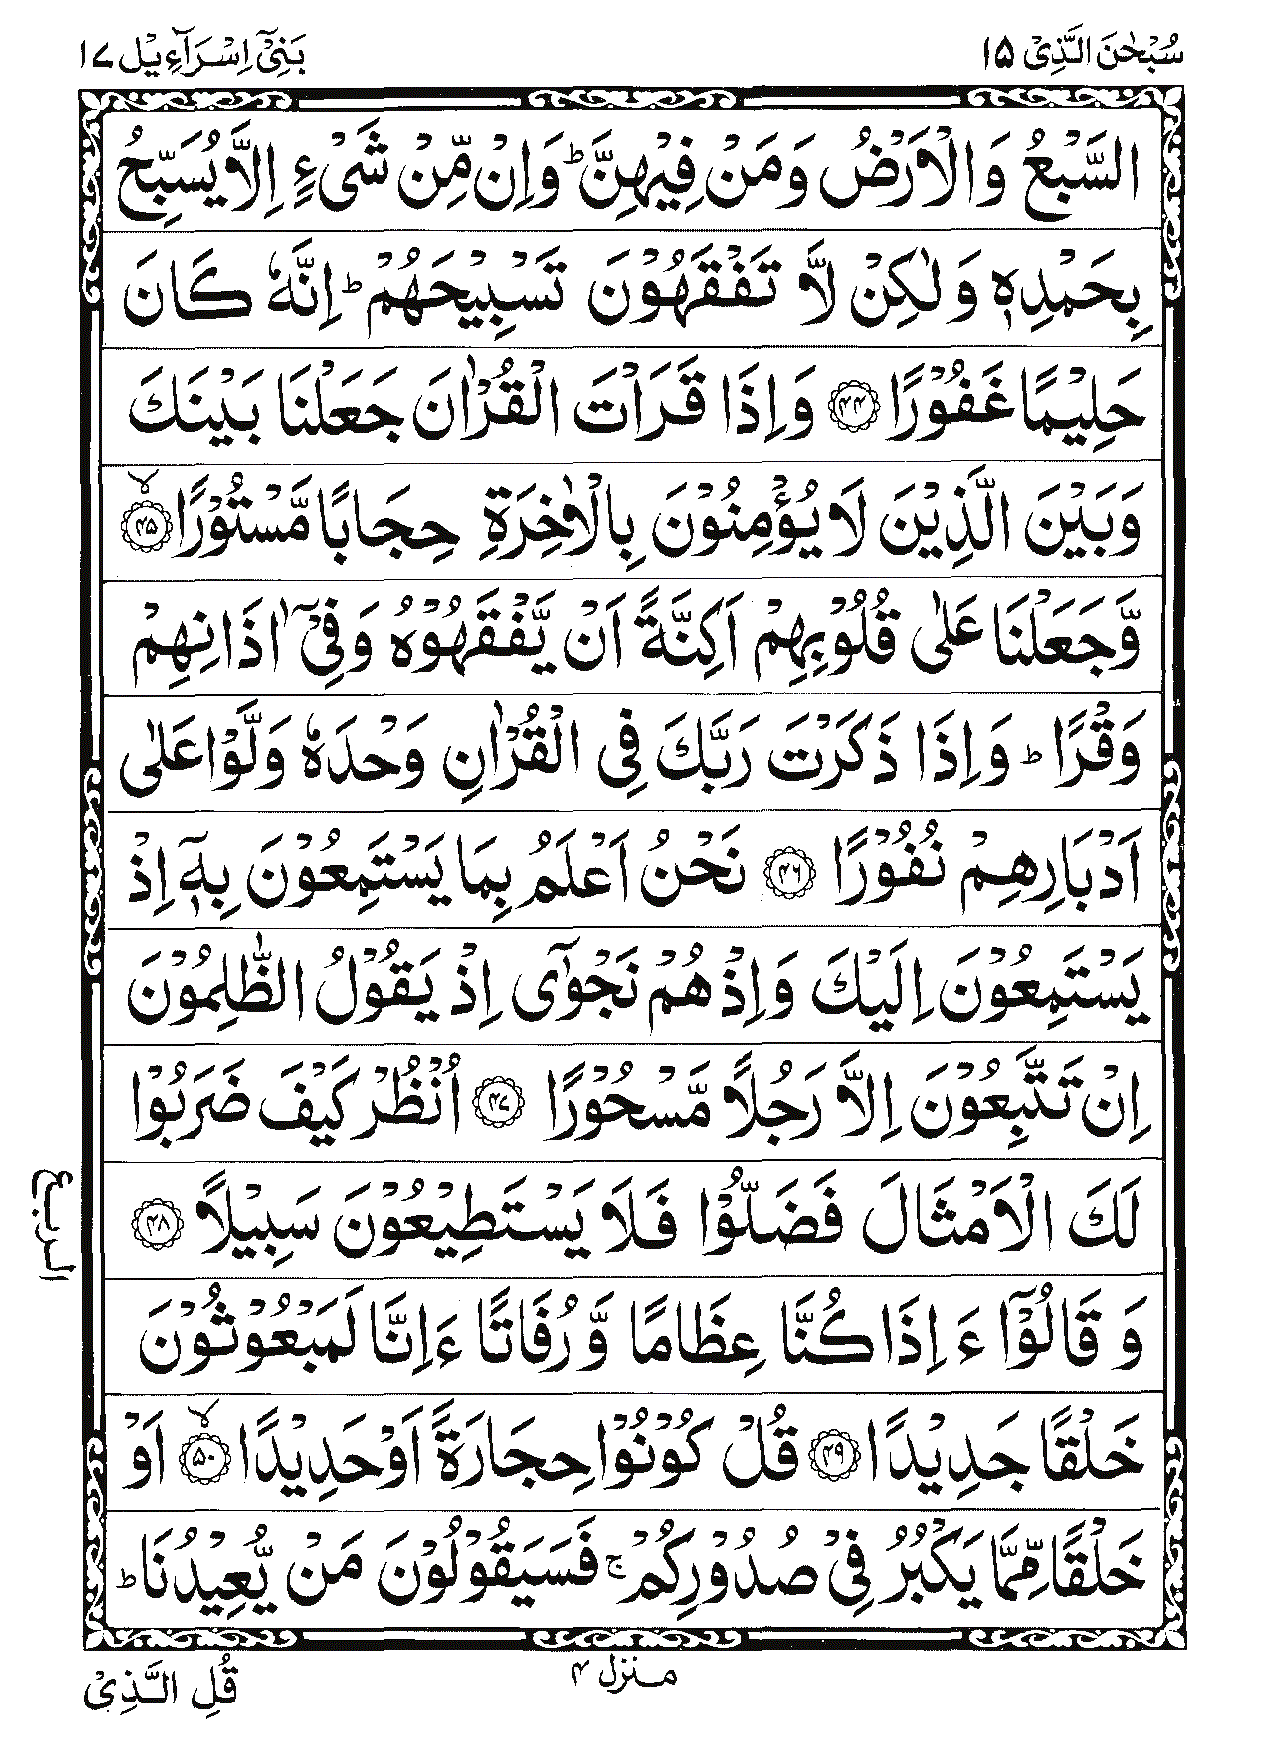 سُبْحٰنَ الَّذِیْۤ ۱۵
بَنِیْۤ اِسْرَآءِیْل ۱۷
السَّبْعُ وَالْاَرْضُ وَمَنْ فِیْهِنَّ ؕ وَاِنْ مِّنْ شَیْءٍ اِلَّا یُسَبِّحُ
بِحَمْدِهٖ وَلٰكِنْ لَّا تَفْقَهُوْنَ تَسْبِیْحَهُمْ ؕ اِنَّهٗ كَانَ
حَلِیْمًا غَفُوْرًا ﴿۴۴﴾ وَاِذَا قَرَاْتَ الْقُرْاٰنَ جَعَلْنَا بَیْنَكَ
وَبَیْنَ الَّذِیْنَ لَا یُؤْمِنُوْنَ بِالْاٰخِرَةِ حِجَابًا مَّسْتُوْرًا ﴿۴۵﴾ ۙ
وَّجَعَلْنَا عَلٰی قُلُوْبِهِمْ اَكِنَّةً اَنْ یَّفْقَهُوْهُ وَفِیْۤ اٰذَانِهِمْ
وَقْرًا ؕ وَاِذَا ذَكَرْتَ رَبَّكَ فِی الْقُرْاٰنِ وَحْدَهٗ وَلَّوْا عَلٰۤی
اَدْبَارِهِمْ نُفُوْرًا ﴿۴۶﴾ نَحْنُ اَعْلَمُ بِمَا یَسْتَمِعُوْنَ بِهٖۤ اِذْ
یَسْتَمِعُوْنَ اِلَیْكَ وَاِذْ هُمْ نَجْوٰۤی اِذْ یَقُوْلُ الظّٰلِمُوْنَ
اِنْ تَتَّبِعُوْنَ اِلَّا رَجُلًا مَّسْحُوْرًا ﴿۴۷﴾ اُنْظُرْ كَیْفَ ضَرَبُوْا
لَكَ الْاَمْثَالَ فَضَلُّوْا فَلَا یَسْتَطِیْعُوْنَ سَبِیْلًا ﴿۴۸﴾
الربع
وَ قَالُوْۤا ءَ اِذَا كُنَّا عِظَامًا وَّ رُفَاتًا ءَ اِنَّا لَمَبْعُوْثُوْنَ
خَلْقًا جَدِیْدًا ﴿۴۹﴾ قُلْ كُوْنُوْا حِجَارَةً اَوْ حَدِیْدًا ﴿۵۰﴾ ۙ اَوْ
خَلْقًا مِّمَّا یَكْبُرُ فِیْ صُدُوْرِكُمْ ۚ فَسَیَقُوْلُوْنَ مَنْ یُّعِیْدُنَا ؕ
منزل ۴
قُلِ الَّذِیْ